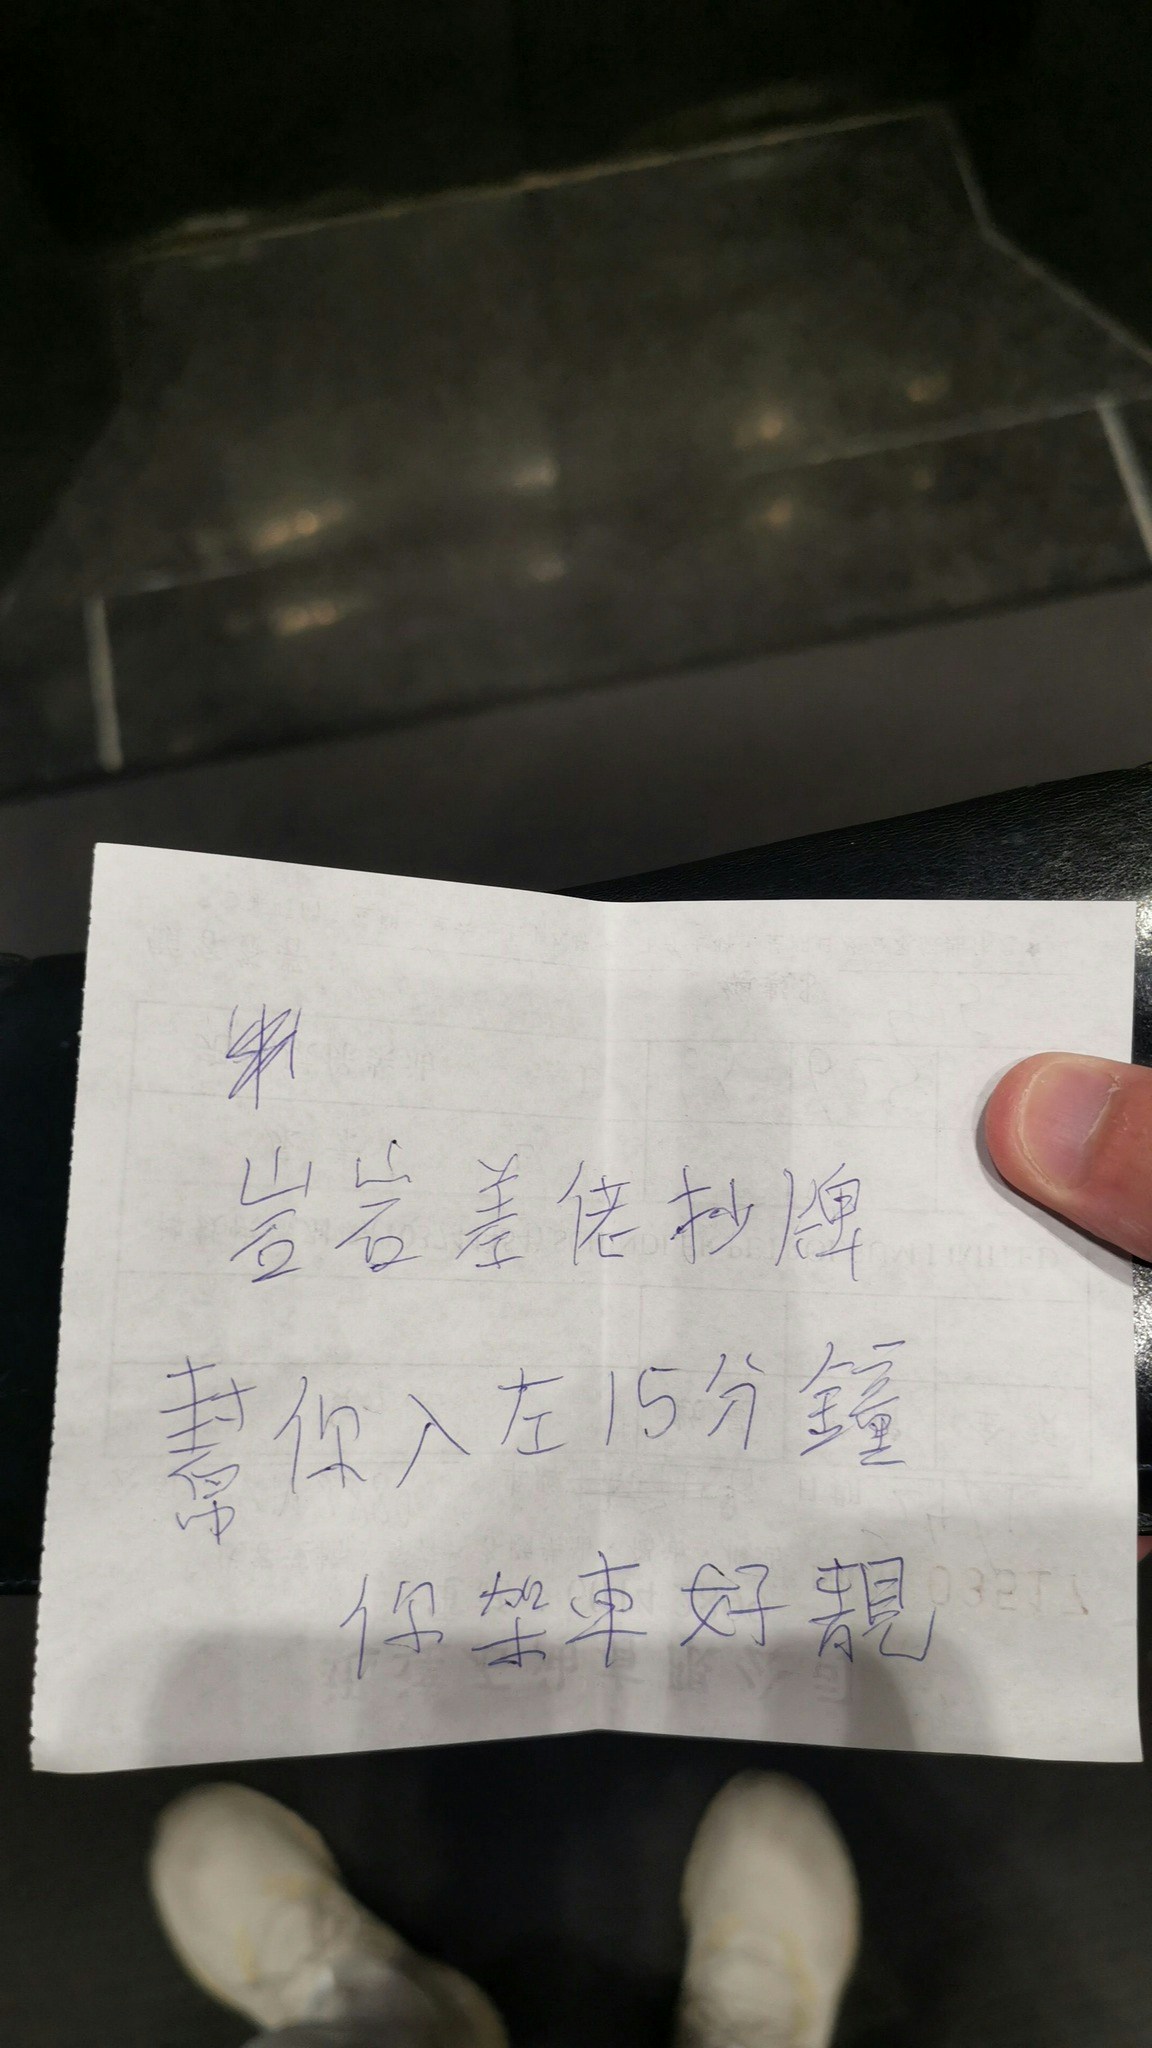 岩岩差佬抄牌
幫你入左15分鐘
你架車好靚